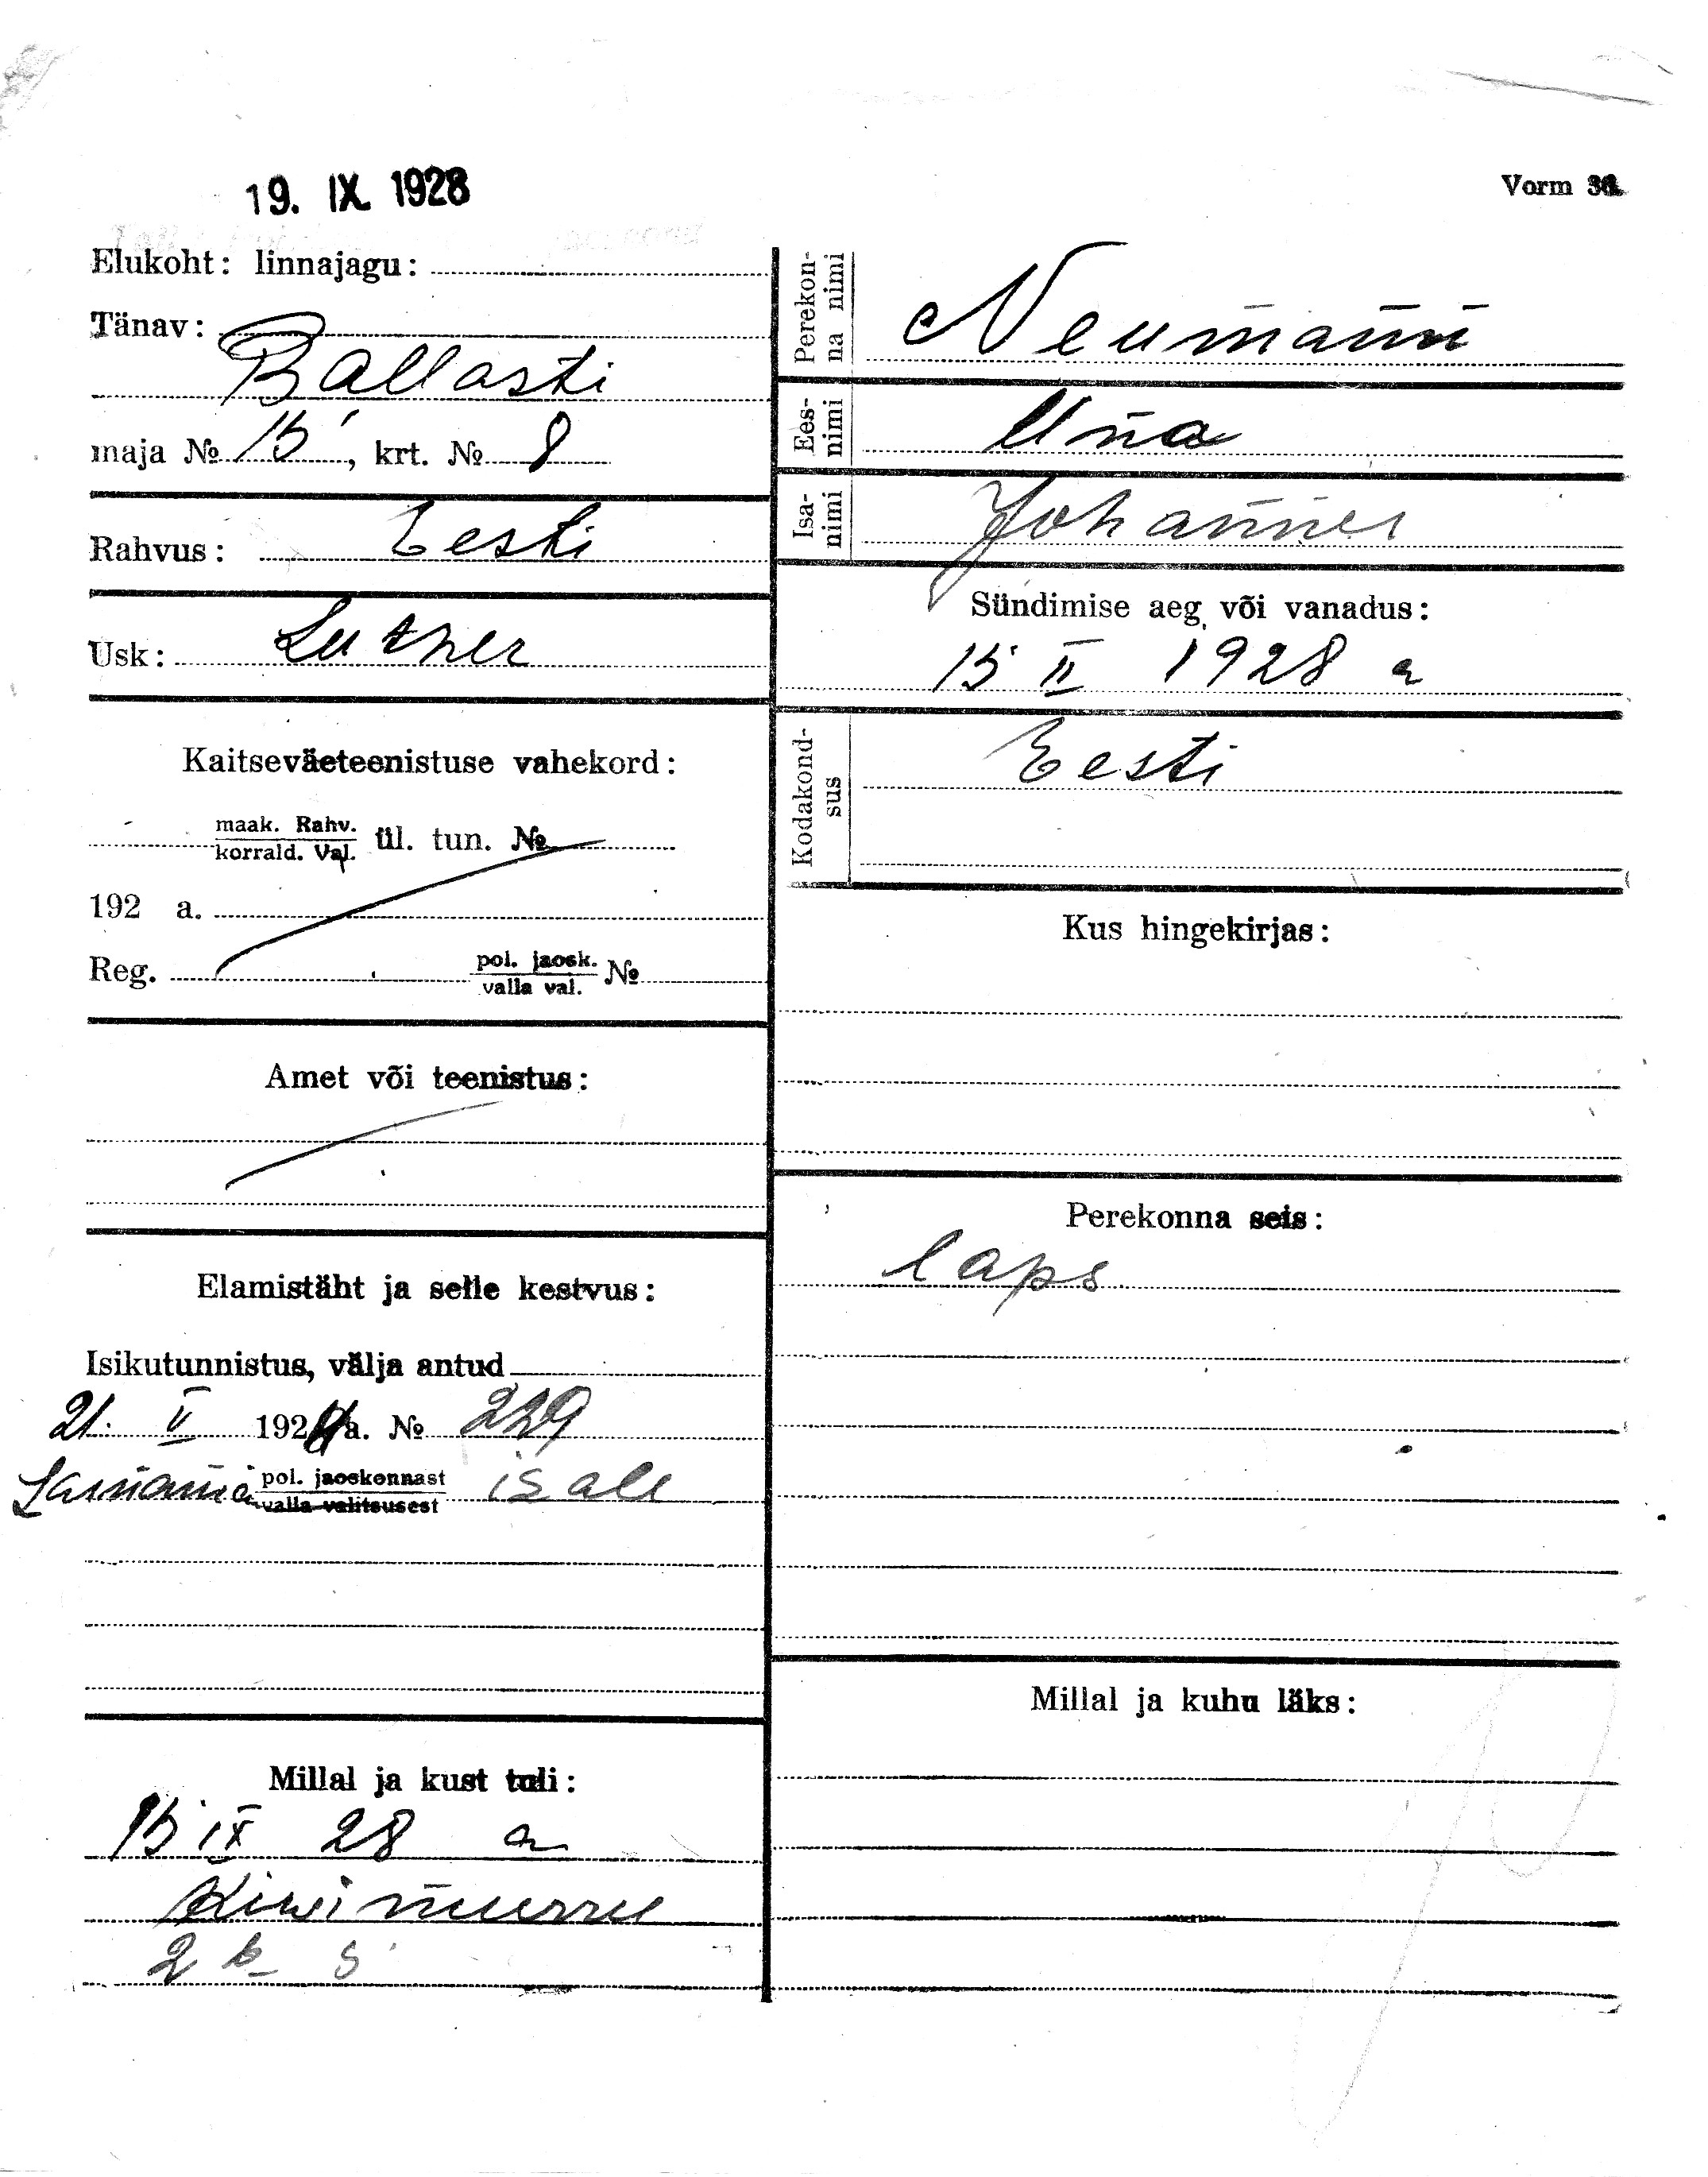 19. IX. 1928
Vorm 36.
Elukoht: linnajagu:
Tänav:
Ballasti
maja № 15, krt. № 8
Rahvus: Eesti
Usk: Luther
Kaitseväeteenistuse vahekord:
maak. Rahv.
korrald. Val. ül. tun. №
192 a.
Reg. pol. jaosk. №
valla val.
Amet või teenistus:
Elamistäht ja selle kestvus:
Isikutunnistus, välja antud
21. V 192 a. № 229
pol. jaoskonnast isale
valla valitsusest
Millal ja kust tuli:
15 IX 28 a
Kiwimurru
2
Perekon-
na nimi
Neumann
Ees-
nimi
Una
Isa-
nimi
Johannes
Sündimise aeg või vanadus:
15 II 1928 a
Kodakond-
sus
Eesti
Kus hingekirjas:
Perekonna seis:
laps
Millal ja kuhu läks: